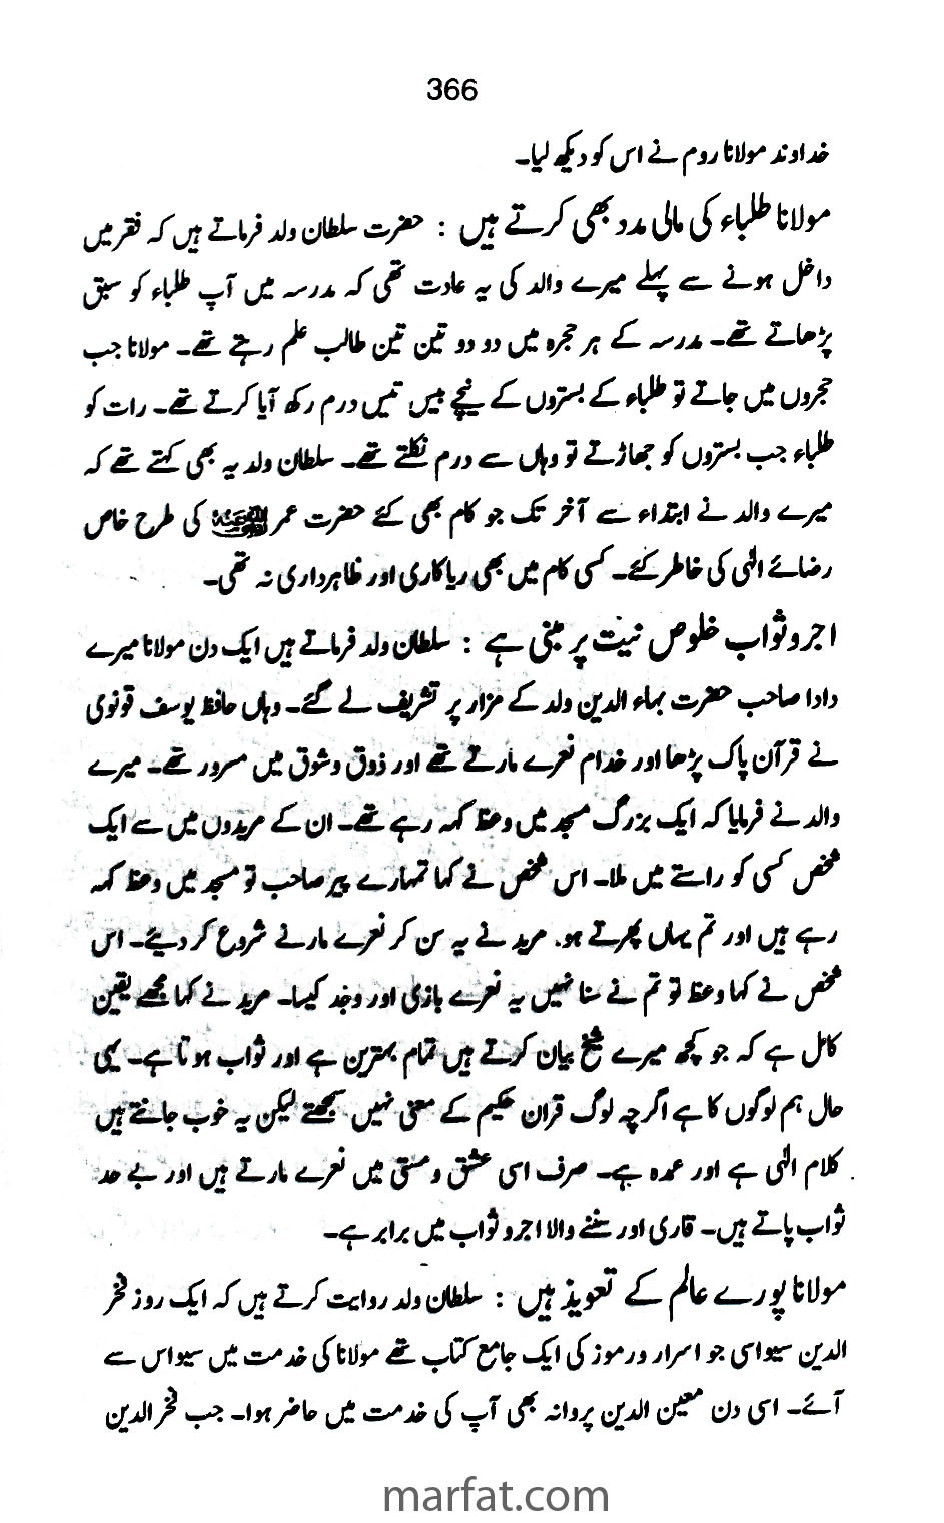 366
خداوند مولانا روم نے اس کو دیکھ لیا۔
مولانا طلباء کی مالی مدد بھی کرتے ہیں : حضرت سلطان ولد فرماتے ہیں کہ فقر میں
داخل ہونے سے پہلے میرے والد کی یہ عادت تھی کہ مدرسہ میں آپ طلباء کو سبق
پڑھاتے تھے۔ مدرسہ کے ہر حجرہ میں دو دو تین تین طالب علم رہتے تھے۔ مولانا جب
حجروں میں جاتے تو طلباء کے بستروں کے نیچے بیس تیس درم رکھ آیا کرتے تھے۔ رات کو
طلباء جب بستروں کو جھاڑتے تو وہاں سے درم نکلتے تھے۔ سلطان ولد یہ بھی کہتے تھے کہ
میرے والد نے ابتداء سے آخر تک جو کام بھی کئے حضرت عمر کی طرح خاص
رضائے الٰہی کی خاطر کئے۔ کسی کام میں بھی ریاکاری اور ظاہرداری نہ تھی۔
اجر و ثواب خلوص نیت پر مبنی ہے : سلطان ولد فرماتے ہیں ایک دن مولانا میرے
دادا صاحب حضرت بہاء الدین ولد کے مزار پر تشریف لے گئے۔ وہاں حافظ یوسف قونوی
نے قرآن پاک پڑھا اور خدام نعرے مارتے تھے اور ذوق و شوق میں مسرور تھے۔ میرے
والد نے فرمایا کہ ایک بزرگ مسجد میں وعظ کہہ رہے تھے۔ ان کے مریدوں میں سے ایک
شخص کسی کو راستے میں ملا۔ اس شخص نے کہا تمہارے پیر صاحب تو مسجد میں وعظ کہہ
رہے ہیں اور تم یہاں پھرتے ہو۔ مرید نے یہ سن کر نعرے مارنے شروع کر دیئے۔ اس
شخص نے کہا وعظ تو تم نے سنا نہیں یہ نعرے بازی اور وجد کیسا۔ مرید نے کہا مجھے یقین
کامل ہے کہ جو کچھ میرے شیخ بیان کرتے ہیں تمام بہترین ہے اور ثواب ہوتا ہے۔ یہی
حال ہم لوگوں کا ہے اگرچہ لوگ قران حکیم کے معنی نہیں سمجھتے لیکن یہ خوب جانتے ہیں
کلام الٰہی ہے اور عمدہ ہے۔ صرف اسی عشق و مستی میں نعرے مارتے ہیں اور بے حد
ثواب پاتے ہیں۔ قاری اور سننے والا اجر و ثواب میں برابر ہے۔
مولانا پورے عالم کے تعویذ ہیں : سلطان ولد روایت کرتے ہیں کہ ایک روز فخر
الدین سیواسی جو اسرار و رموز کی ایک جامع کتاب تھے مولانا کی خدمت میں سیواس سے
آئے۔ اسی دن معین الدین پروانہ بھی آپ کی خدمت میں حاضر ہوا۔ جب فخر الدین
marfat.com